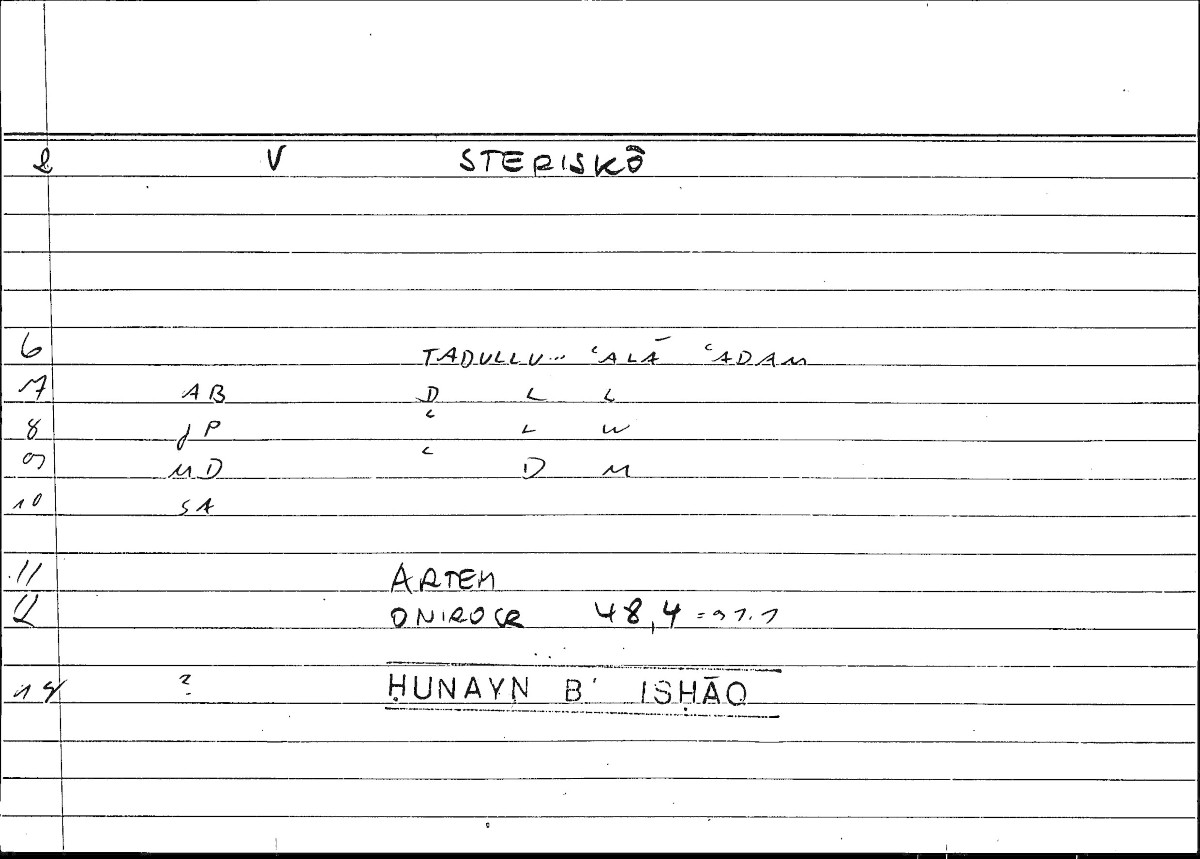 2 V STERISKÔ
6 TADULLU... ʿALĀ ʿADAM
7 AB D L L
8 JP ʿ L W
9 MD ʿ D M
10 SA
11 ARTEM
12 ONIROCR 48,4
14 ? ḤUNAYN B' ISḤĀQ